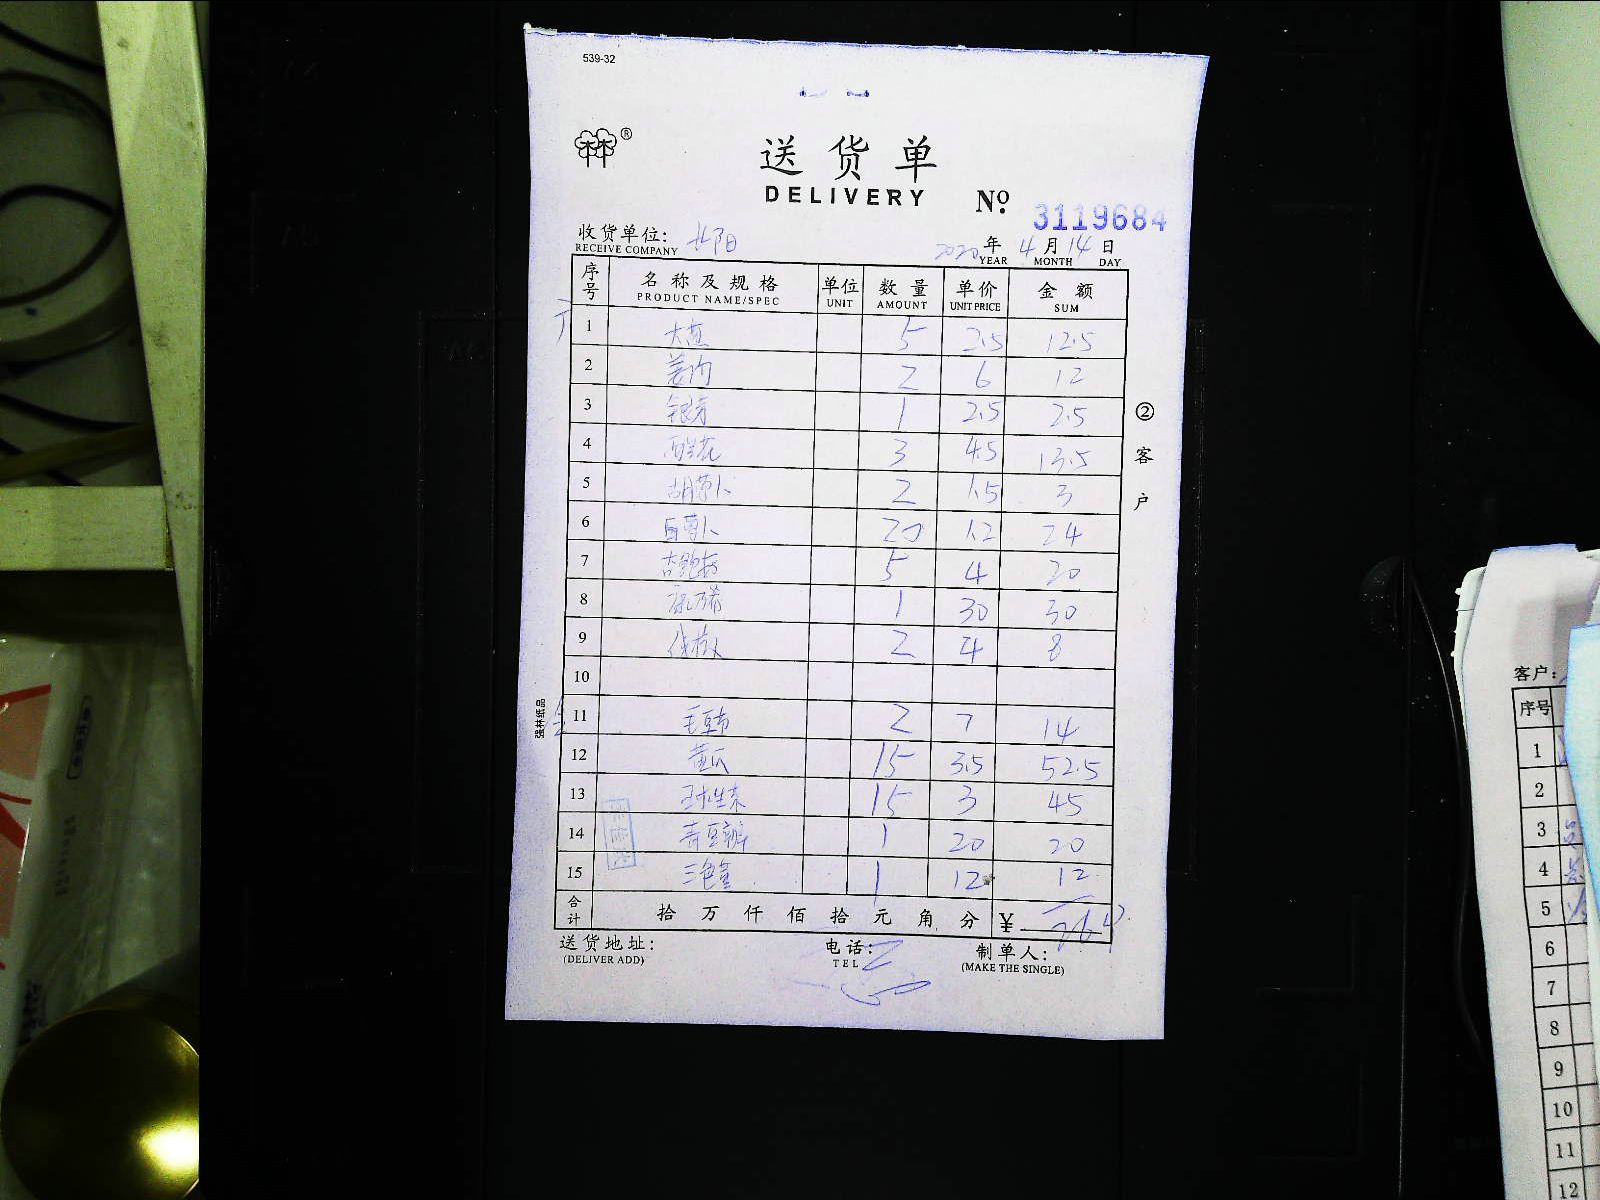 539-32
®
送货单
DELIVERY No. 3119684
收货单位: 2020年 4月14日
RECEIVE COMPANY YEAR MONTH DAY
序号 名称及规格 单位 数量 单价 金额
PRODUCT NAME/SPEC UNIT AMOUNT UNIT PRICE SUM
1 大葱 5 2.5 12.5
2 姜肉 2 6 12
3 银芽 1 2.5 2.5
4 西兰花 3 4.5 13.5
5 胡萝卜 2 1.5 3
6 白萝卜 20 1.2 24
7 杏鲍菇 5 4 20
8 1 30 30
9 2 4 8
10
11 毛豆节 2 7 14
12 黄瓜 15 3.5 52.5
13 球生菜 15 3 45
14 青豆瓣 1 20 20
15 三色堇 1 12 12
合计 拾万仟佰拾元角分 ¥
送货地址: 电话: 制单人:
(DELIVER ADD) TEL (MAKE THE SINGLE)
②客户
强林纸品
客户:
序号
1
2
3
4
5
6
7
8
9
10
11
12